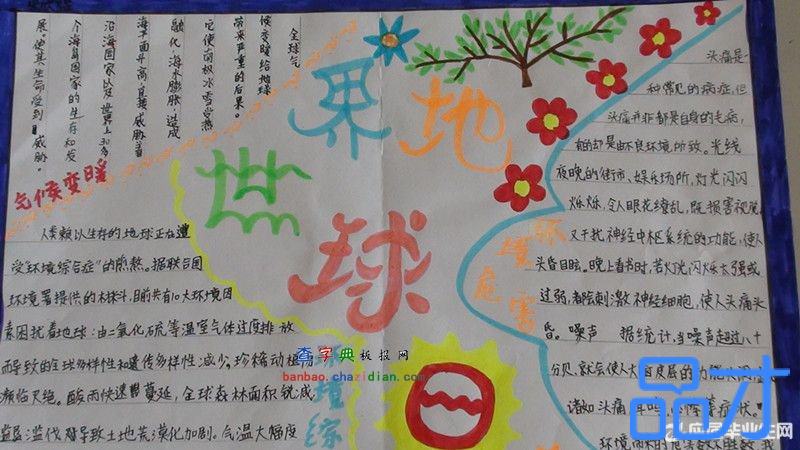 全球气
候变暖给地球
带来严重的后果。
它使南极冰雪
融化，海水膨胀，造成
海平面升高，直接威胁着
沿海国家以及世界上30多
个海岛国家的生存和发
展。使其生命受到威胁。
气候变暖
世界地球日
人类赖以生存的地球正在遭
受"环境综合症"的煎熬。据联合国
环境署提供的
目前共有10大环境因
素困扰着地球：由二氧化硫等温室气体过度排放
而导致的全球多样性和遗传多样性减少，珍稀动植
濒临灭绝。酸雨快速蔓延，全球森林面积锐减
滥伐
导致土地荒漠化加剧。气温大幅度
环境综
头痛是一
种常见的病症，但
头痛并非都是自身的毛病，
有的却是由不良环境所致。光线
夜晚的街市、娱乐场所，灯光闪闪
烁烁，令人眼花缭乱，既损害视觉，
又干扰神经中枢系统的功能，使人
头昏目眩。晚上看书时，若灯光闪烁太强或
过弱，都会刺激神经细胞，使人头痛头
昏。噪声 据统计，当噪声超过八十
分贝，就会使人
诸如头痛、耳鸣、
等症状。
环境危害
查字典板报网
banbao.chazidian.com
品才
应届毕业生网